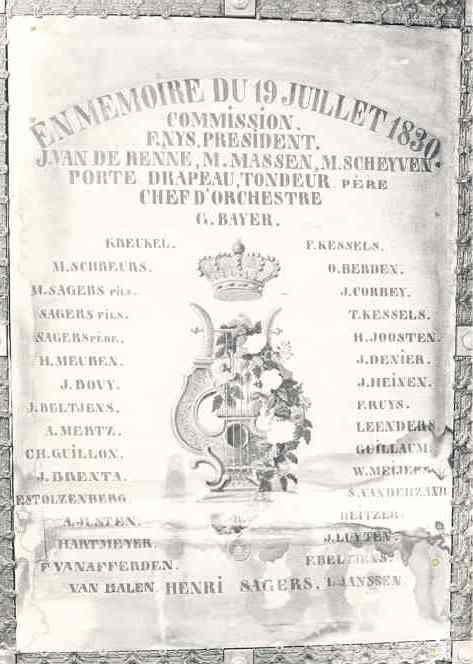 EN MEMOIRE DU 19 JUILLET 1830.
COMMISSION.
F.NYS, PRESIDENT.
J.VAN DE RENNE, M. MASSEN, M.SCHEYVEN.
PORTE DRAPEAU, TONDEUR PÈRE
CHEF D'ORCHESTRE
G. BAYER.
KREUKEL. F.KESSELS.
M.SCHREURS. O.BERDEN.
M.SAGERS FILS. J.CORBEY.
SAGERS FILS. T.KESSELS.
SAGERS PÈRE. H.JOOSTEN.
H.MEUBEN. J.DENIER.
J.BOUY. J.HEINEN.
J.BELTJENS. F.RUYS.
A.MERTZ. LEENDERS.
CH.GUILLON. GUILLAUM.
J.BRENTA. W.MEIJERS.
STOLZENBERG S.VANDERZAND
A.JUSTEN. REITZER.
HARTMEYER. J.LUYTEN.
F VANAFFERDEN. F.BELTJENS.
VAN BALEN HENRI SAGERS. L JANSSEN